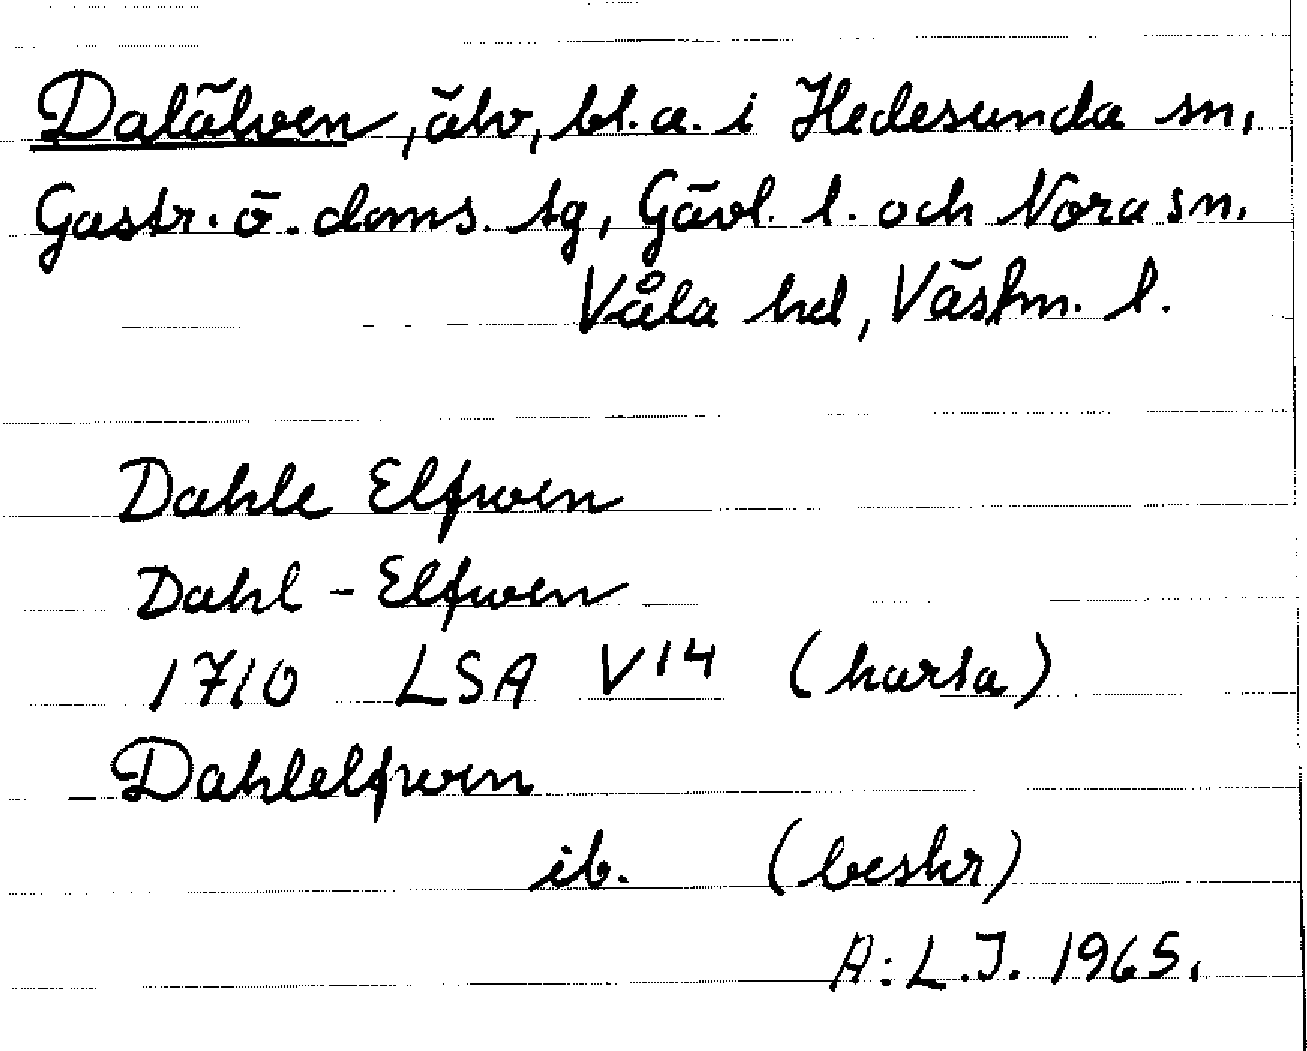 Dalälven, älv, bl.a. i Hedesunda sn,
Gästr. ö. doms. tg, Gävl. l. och Nora sn.
Våla hd, Västm. l.
Dahle Elfwen
Dahl - Elfwen
1710 LSA V14 (karta)
Dahlelfwen
ib. (beskr)
A:L.J. 1965.